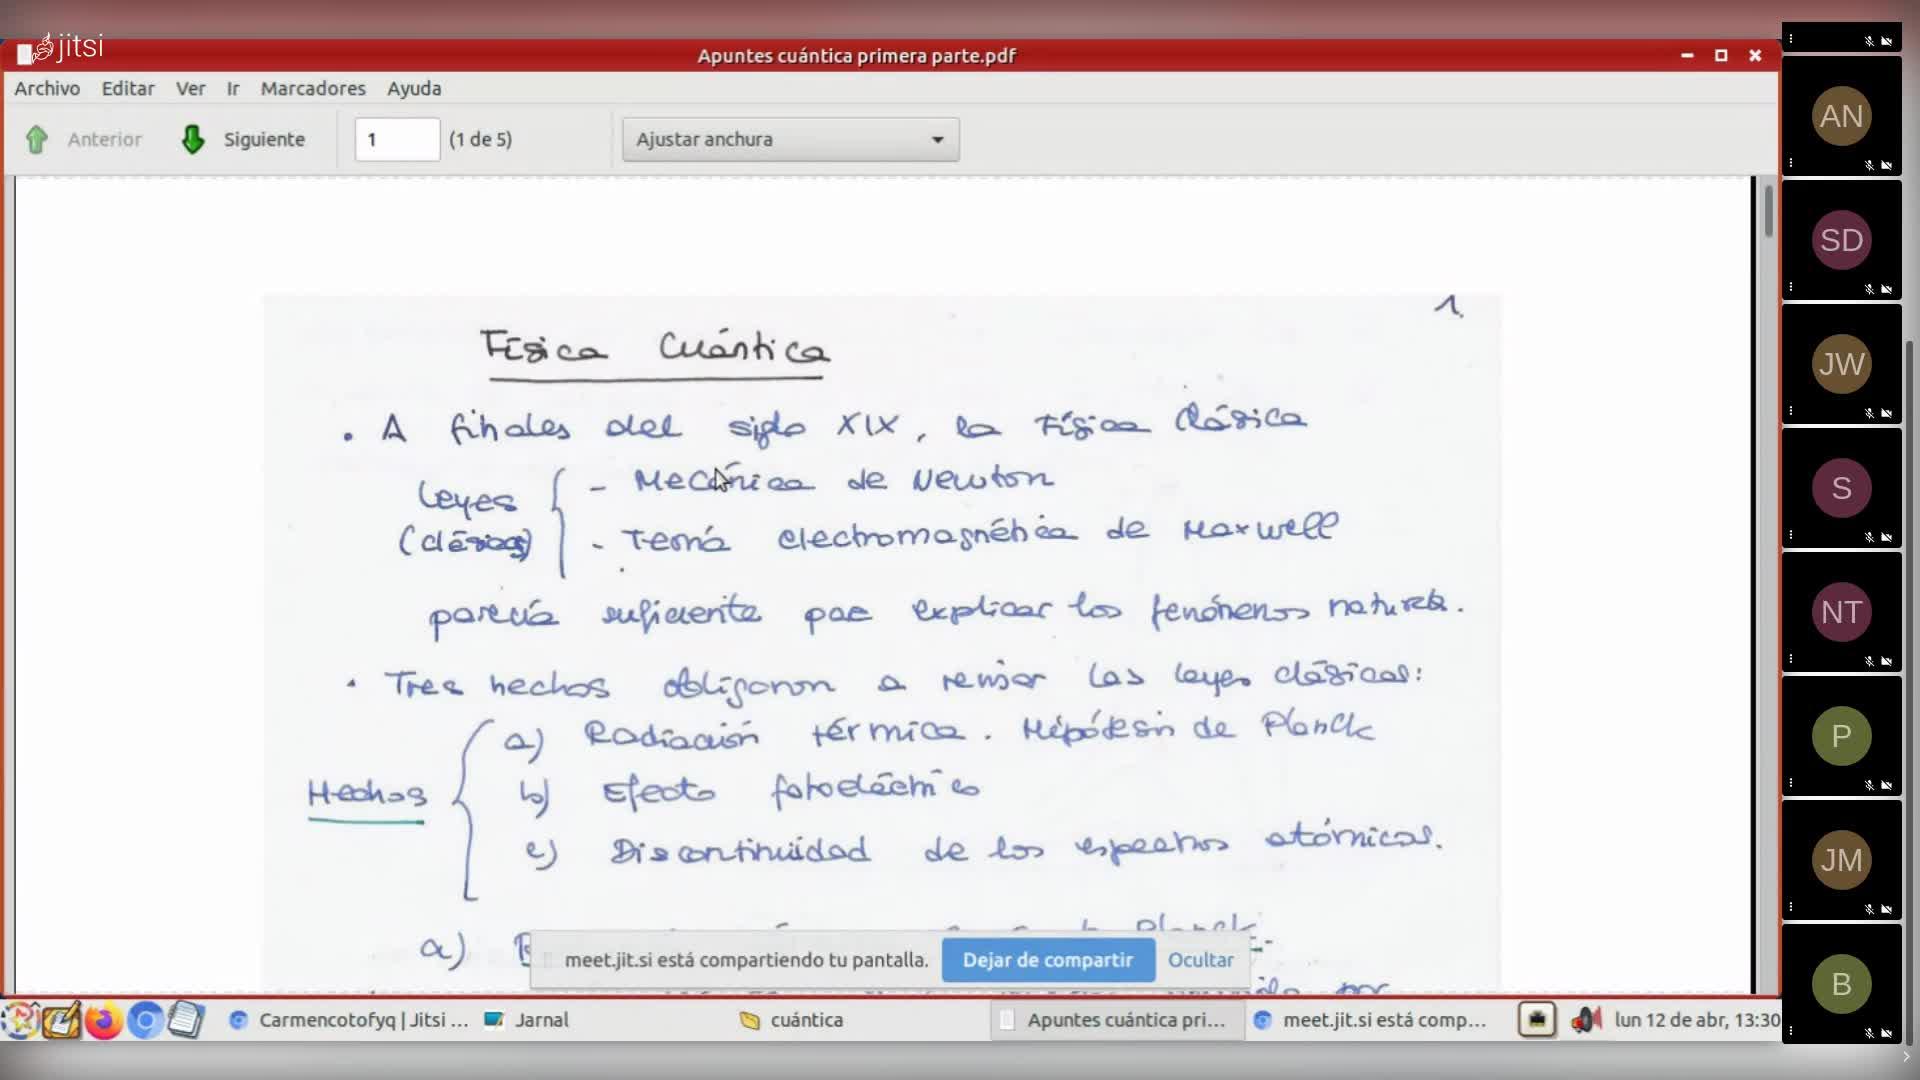 jitsi
Apuntes cuántica primera parte.pdf
Archivo Editar Ver Ir Marcadores Ayuda
Anterior Siguiente 1 (1 de 5) Ajustar anchura
1.
Física Cuántica
• A finales del siglo XIX, la Física Clásica
Leyes (clásicas)
- Mecánica de Newton
- Teoría electromagnética de Maxwell
parecía suficiente para explicar los fenómenos naturales.
• Tres hechos obligaron a revisar las leyes clásicas:
Hechos
a) Radiación térmica. Hipótesis de Planck
b) Efecto fotoeléctrico
c) Discontinuidad de los espectros atómicos.
a) Planck
por
meet.jit.si está compartiendo tu pantalla. Dejar de compartir Ocultar
Carmencotofyq | Jitsi ... Jarnal cuántica Apuntes cuántica pri... meet.jit.si está comp... lun 12 de abr, 13:30
AN
SD
JW
S
NT
P
JM
B